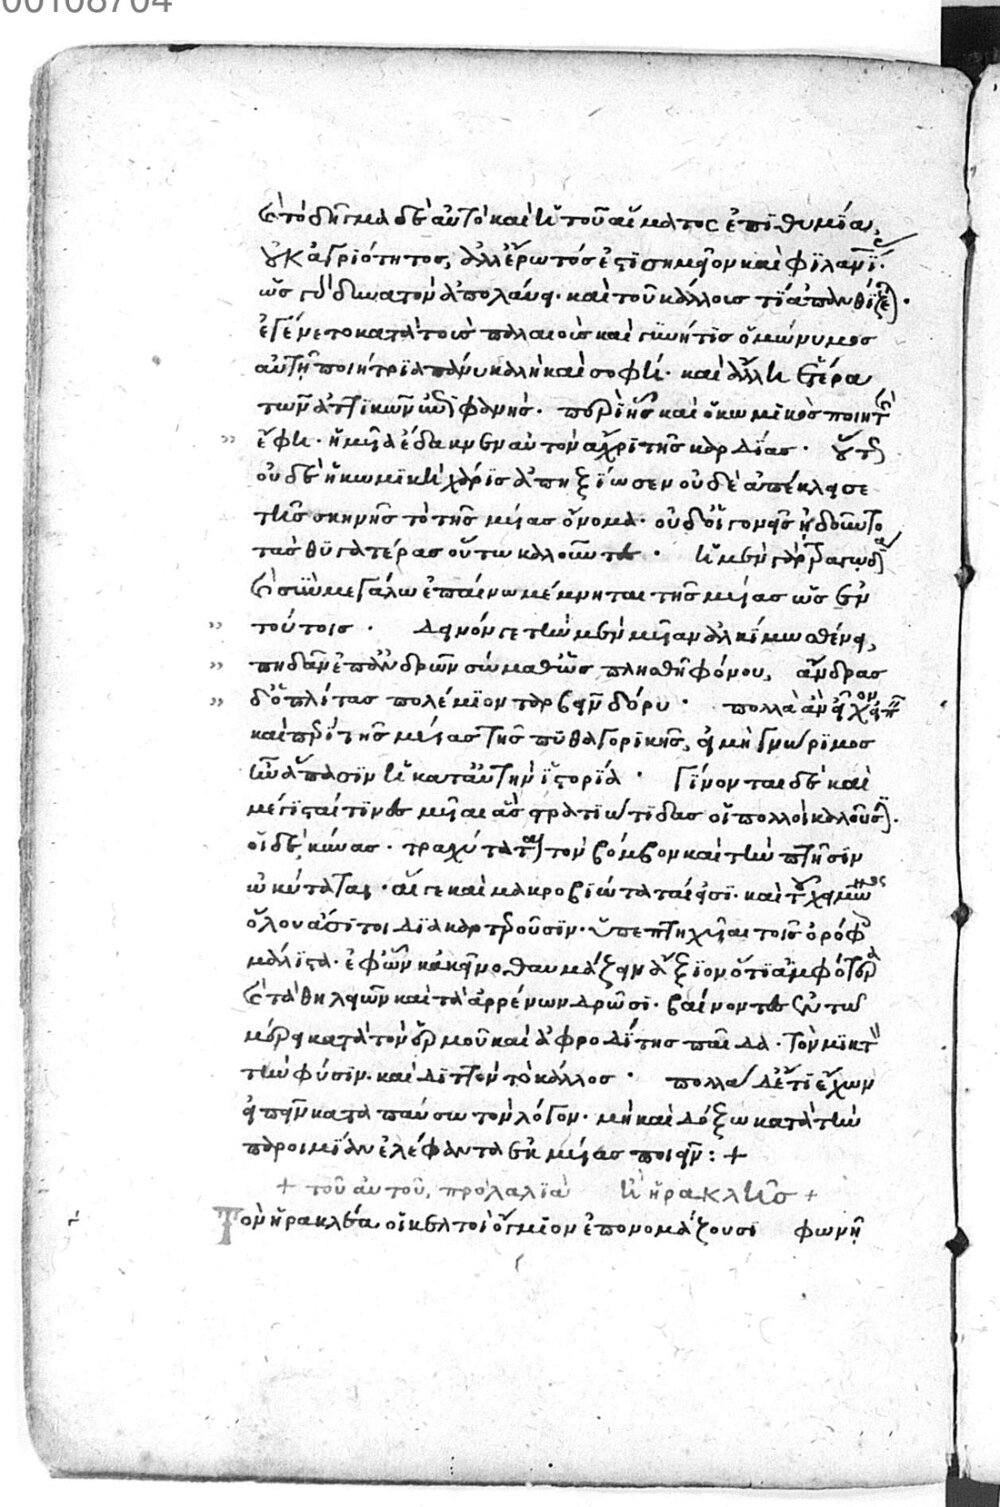 00108704
τὸ δῆγμα δὲ αὐτὸ καὶ ἡ τοῦ αἵματος ἐπιθυμία,
οὐκ ἀγριότητος, ἀλλ' ἔρωτός ἐστι σημεῖον καὶ φιλανί.
ὡς γὰρ δυνατὸν ἀπολαύει. καὶ τοῦ κάλλους τι ἀπανθίζεται.
ἐγένετο κατὰ τοὺς παλαιοὺς καὶ γυνή τις ὁμώνυμος
αὐτῇ ποιήτρια πάνυ καλὴ καὶ σοφή. καὶ ἄλλη ἑτέρα
τῶν ἀττικῶν ἐπιφανής. περὶ ἧς καὶ ὁ κωμικὸς ποιητὴς
ἔφη. ἡ μυῖα ἔδακνεν αὐτὸν ἄχρι τῆς καρδίας. οὕτως
οὐδὲ ἡ κωμικὴ χάρις ἀπηξίωσεν οὐδὲ ἀπέκλεισε
τῆς σκηνῆς τὸ τῆς μυίας ὄνομα. οὐδ' οἱ γονεῖς ᾐδοῦντο
τὰς θυγατέρας οὕτω καλοῦντες. ἡ μὲν γὰρ τραγῳδία
σὺν μεγάλῳ ἐπαίνῳ μέμνηται τῆς μυίας ὡς ἐν
τούτοις. δεινόν γε τὴν μὲν μυῖαν ἀλκίμῳ σθένει,
πηδᾶν ἐπ' ἀνδρῶν σώμαθ' ὡς πλησθῇ φόνου, ἄνδρας
δ' ὁπλίτας πολέμιον ταρβεῖν δόρυ. πολλὰ ἂν εἶχον εἰπεῖν
καὶ περὶ τῆς μυίας τῆς πυθαγορικῆς, εἰ μὴ γνώριμος
ἦν ἅπασιν ἡ κατ' αὐτὴν ἱστορία. γίνονται δὲ καὶ
μέγισταί τινες μυῖαι ἃς στρατιώτιδας οἱ πολλοὶ καλοῦσιν.
οἱ δὲ, κύνας. τραχύταται τὸν βόμβον καὶ τὴν πτῆσιν
ὠκύταται. αἵ γε καὶ μακροβιώταταί εἰσι. καὶ τοῦ χειμῶνος
ὅλου ἄσιτοι διακαρτεροῦσιν. ὑπεπτηχυῖαι τοῖς ὀρόφοις
μάλιστα. ἐφ' ὧν κἀκεῖνο θαυμάζειν ἄξιον ὅτι ἀμφότερα
τὰ θηλειῶν καὶ τὰ ἀρρένων δρῶσι. βαίνοντες ἐν τῷ
μέρει κατὰ τὸν ἑρμοῦ καὶ ἀφροδίτης παῖδα. τὸν μικτὸν
τὴν φύσιν. καὶ διττὸν τὸ κάλλος. πολλὰ δ' ἔτι ἔχων
εἰπεῖν καταπαύσω τὸν λόγον. μὴ καὶ δόξω κατὰ τὴν
παροιμίαν ἐλέφαντα ἐκ μυίας ποιεῖν: +
+ τοῦ αὐτοῦ, προλαλιὰ ἢ ἡρακλῆς +
Τὸν ἡρακλέα οἱ κελτοὶ ὄγμιον ἐπονομάζουσι φωνῇ